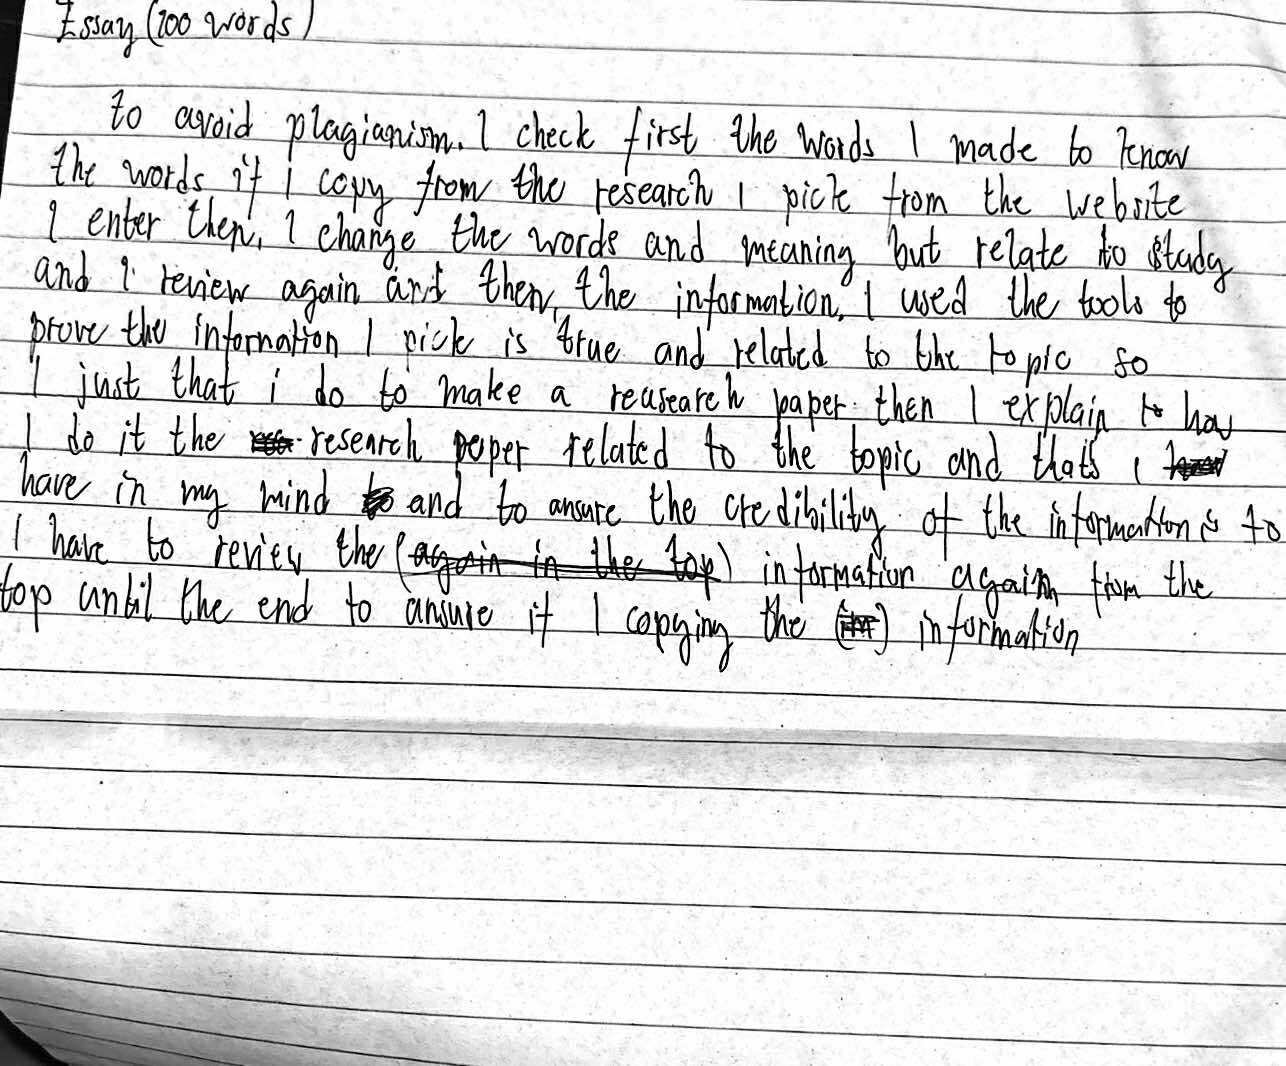 Essay (100 words)
to avoid plagianism. I check first the words I made to know
the words if I copy from the research I pick from the website
I enter then, I change the words and meaning but relate to study
and I review again and then, the information, I used the tools to
prove the information I pick is true and related to the topic so
I just that i do to make a reusearch paper then I explain to how
I do it the research peper related to the topic and thats I
have in my mind and to ansure the credibility of the information is to
I have to review the (again in the top) information again from the
top until the end to ansure if I copying the information